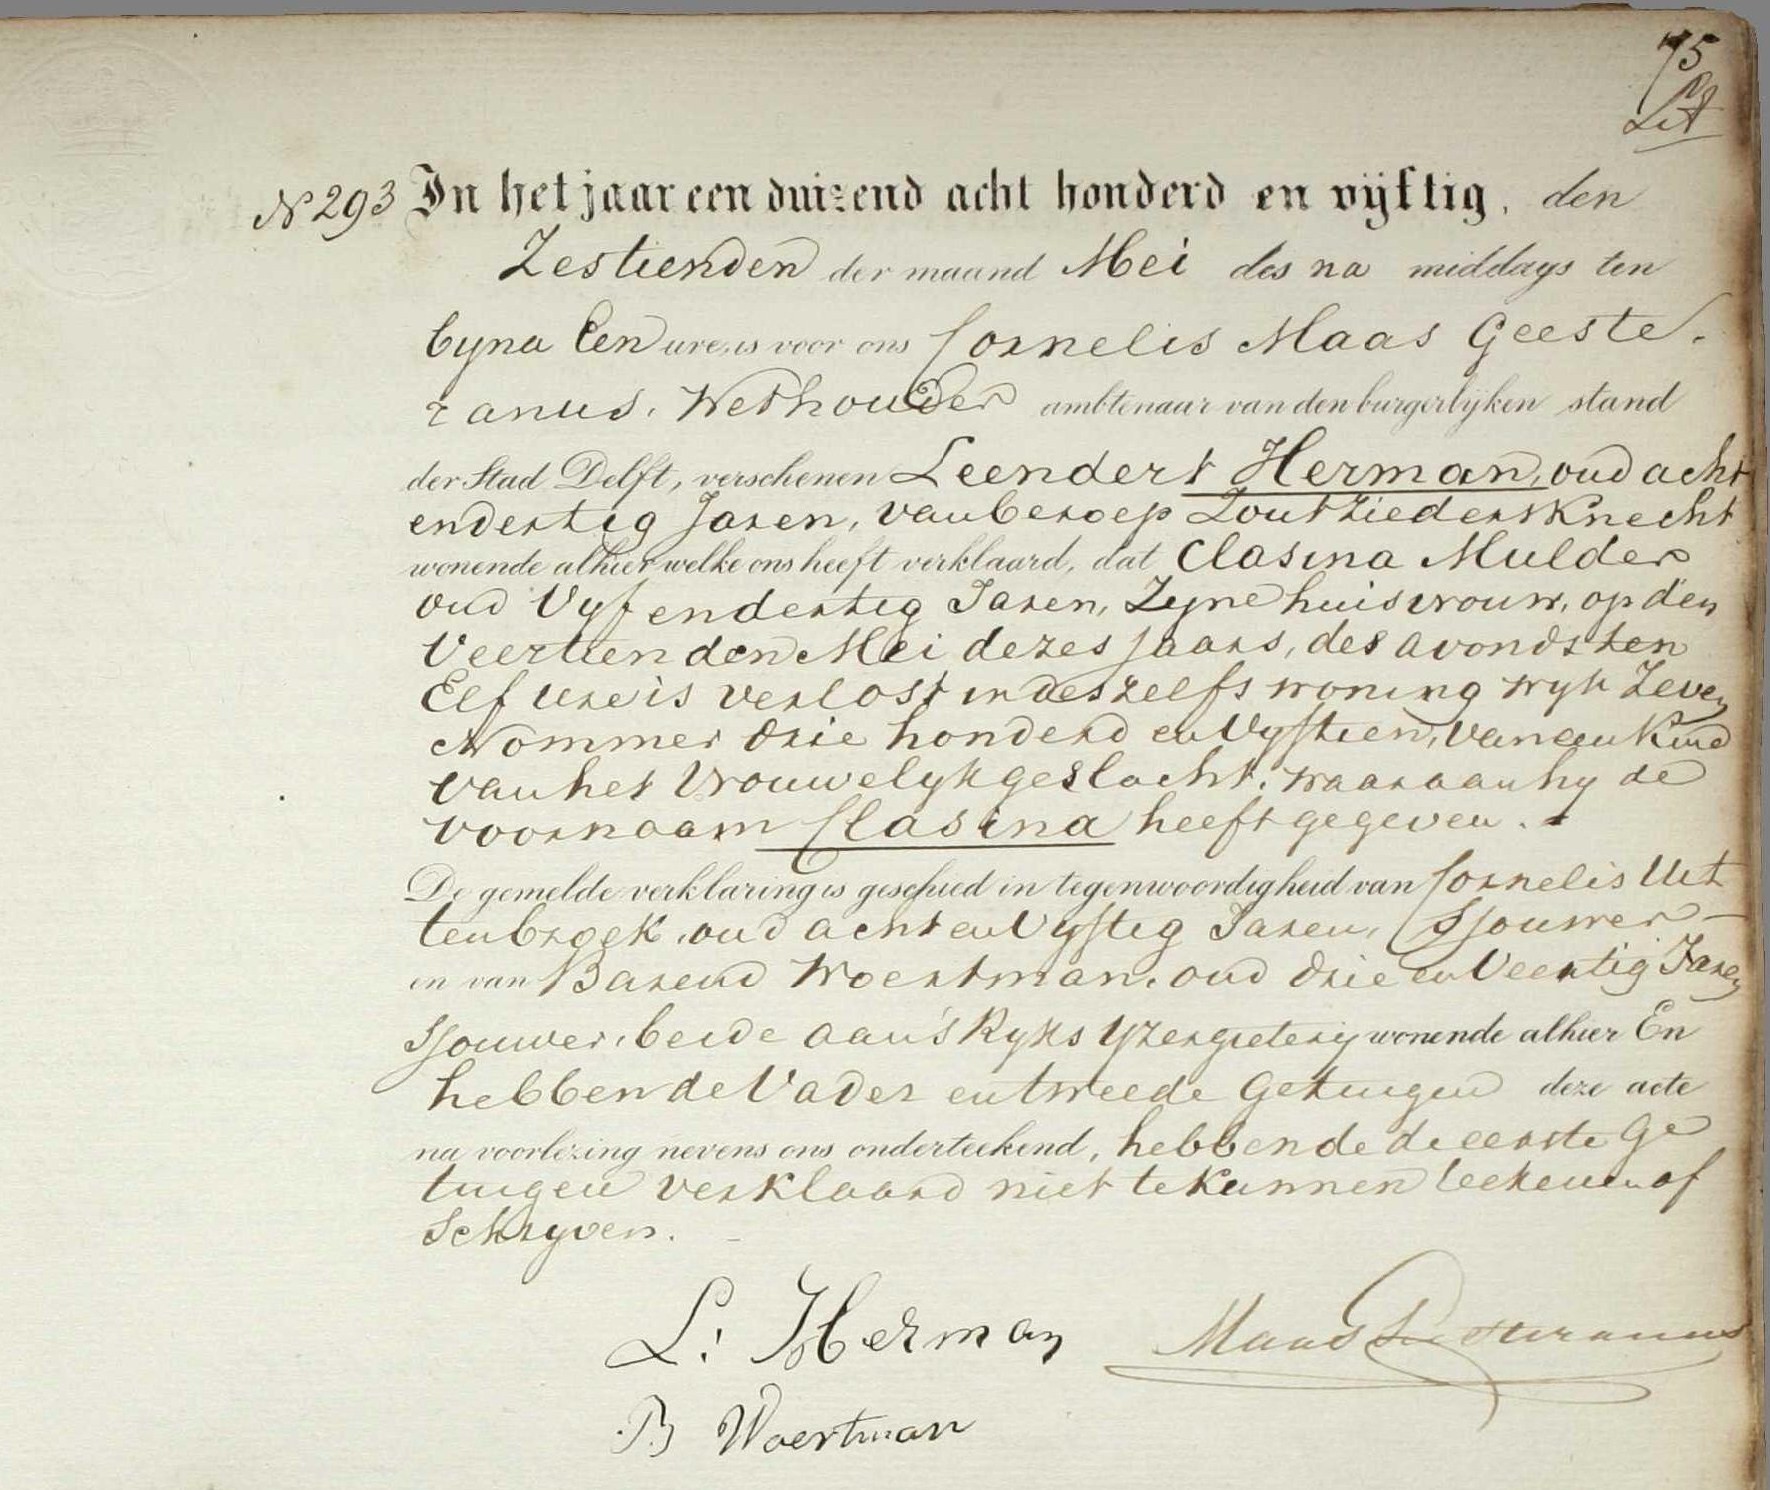 75
N 293 In het jaar een duizend acht honderd en vijftig, den
Zestienden der maand Mei des na middags ten
byna Een ure, is voor ons Cornelis Maas Geeste-
ranus, Wethouder ambtenaar van den burgerlijken stand
der Stad Delft, verschenen Leendert Herman, oud acht
endertig Jaren, van beroep Zoutziedersknecht
wonende alhier welke ons heeft verklaard, dat Clasina Mulder
oud Vyf endertig Jaren, Zyne huisvrouw, op den
Veertienden Mei dezes jaars, des avonds ten
Elf ure is verlost in deszelfs woning wyk Zeven
Nommer drie honderd en Vyftien, van een Kind
van het Vrouwelyk geslacht, waaraan hy de
voornaam Clasina heeft gegeven.
De gemelde verklaring is geschied in tegenwoordigheid van Cornelis Uit
tenbroek, oud acht en Vyftig Jaren, Sjouwer
en van Barend Woertman, oud drie en Veertig Jaren
Sjouwer, beide aan 's Ryks Yzergietery wonende alhier En
hebben de Vader en tweede Getuigen deze acte
na voorlezing nevens ons onderteekend, hebbende de eerste Ge
tuigen verklaard niet te kunnen teekenen of
Schryven.
L. Herman Maas Geesteranus
B Woertman